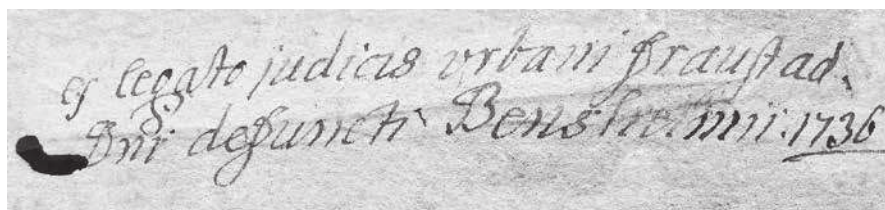 ex legato judicis urbani Fraustad.
Dni defuncti Bensholmii. 1736